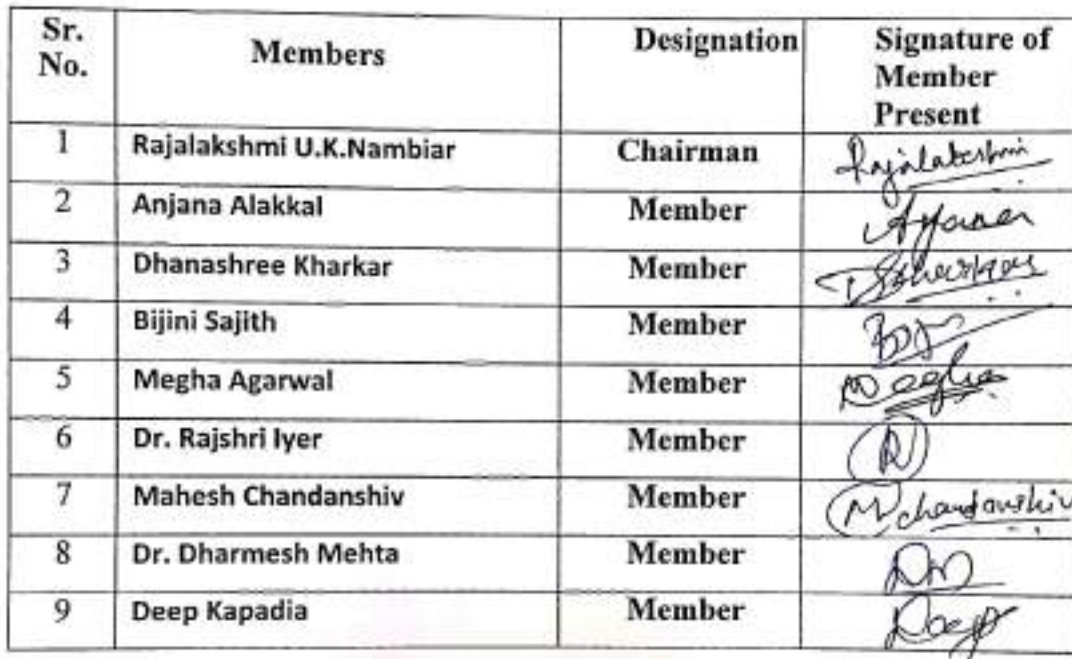 Sr. No. Members Designation Signature of Member Present
1 Rajalakshmi U.K.Nambiar Chairman Rajalakshmi
2 Anjana Alakkal Member Anjana
3 Dhanashree Kharkar Member
4 Bijini Sajith Member
5 Megha Agarwal Member Megha
6 Dr. Rajshri Iyer Member
7 Mahesh Chandanshiv Member Mchandanshiv
8 Dr. Dharmesh Mehta Member
9 Deep Kapadia Member Deep